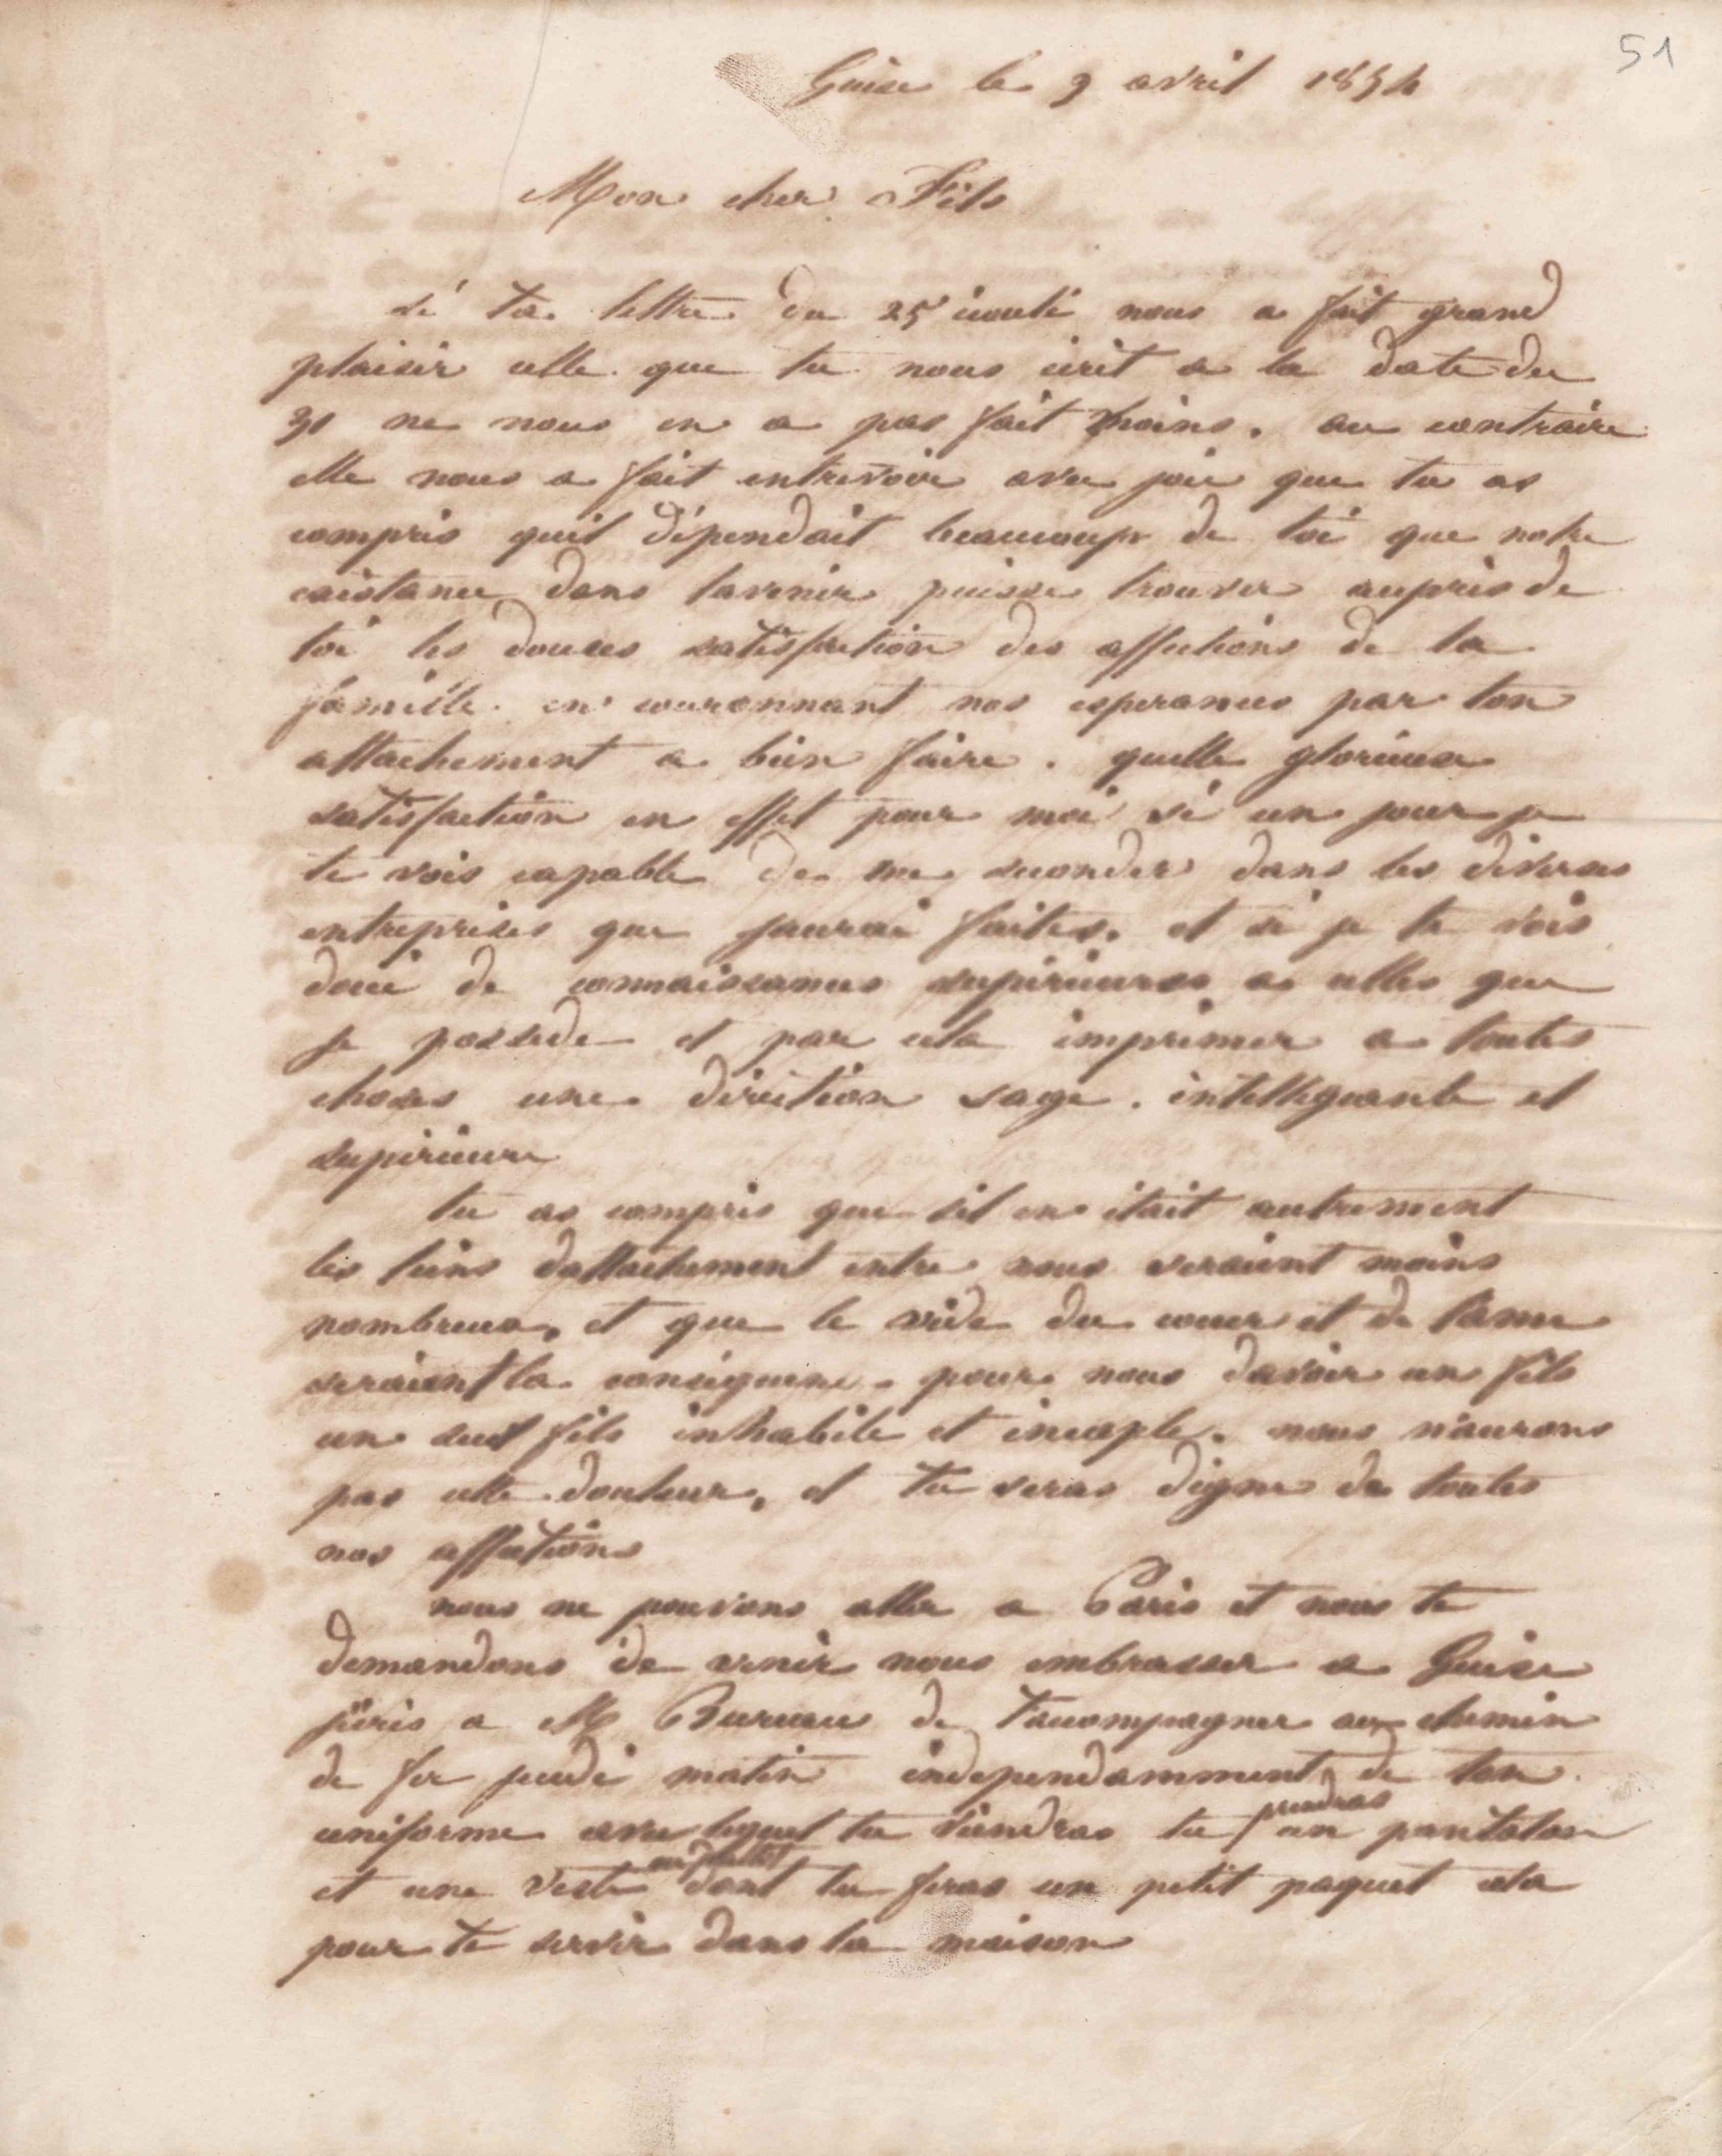 51
Guise le 9 avril 1854
Mon cher Fils
si ta lettre du 25 écoulé nous a fait grand
plaisir celle que tu nous écrit a la date du
31 ne nous en a pas fait moins. au contraire
elle nous a fait entrevoir avec joie que tu as
compris quil dépendait beaucoup de toi que notre
existance dans lavenir puisse trouver auprès de
toi les douces satisfaction des affections de la
famille. en couronnant nos esperances par ton
attachement a bien faire. quelle glorieuse
satisfaction en effet pour moi si un jour je
te vois capable de me seconder dans les diverses
entreprises que jaurai faites. et si je te vois
doué de connaissances supérieures a celles que
je possede et par cela imprimer a toutes
choses une direction sage. intellegeante et
supérieure
tu as compris que sil en était autrement
les liens dattachement entre nous seraient moins
nombreux, et que le vide du coeur et de lame
seraient la conséquence pour nous davoir un fils
un seul fils inhabile et incaple. nous n'aurons
pas cette douleur, et tu seras digne de toutes
nos affections
nous ne pouvons aller a Paris et nous te
demandons de venir nous embrasser a Guise
jécris a Mr Bureau de t'accompagner au chemin
de fer jeudi matin independamment de ton
uniforme avec lequel tu viendras tu prendras un pantalon
et une veste dont tu feras un petit paquet cela
pour te servir dans la maison